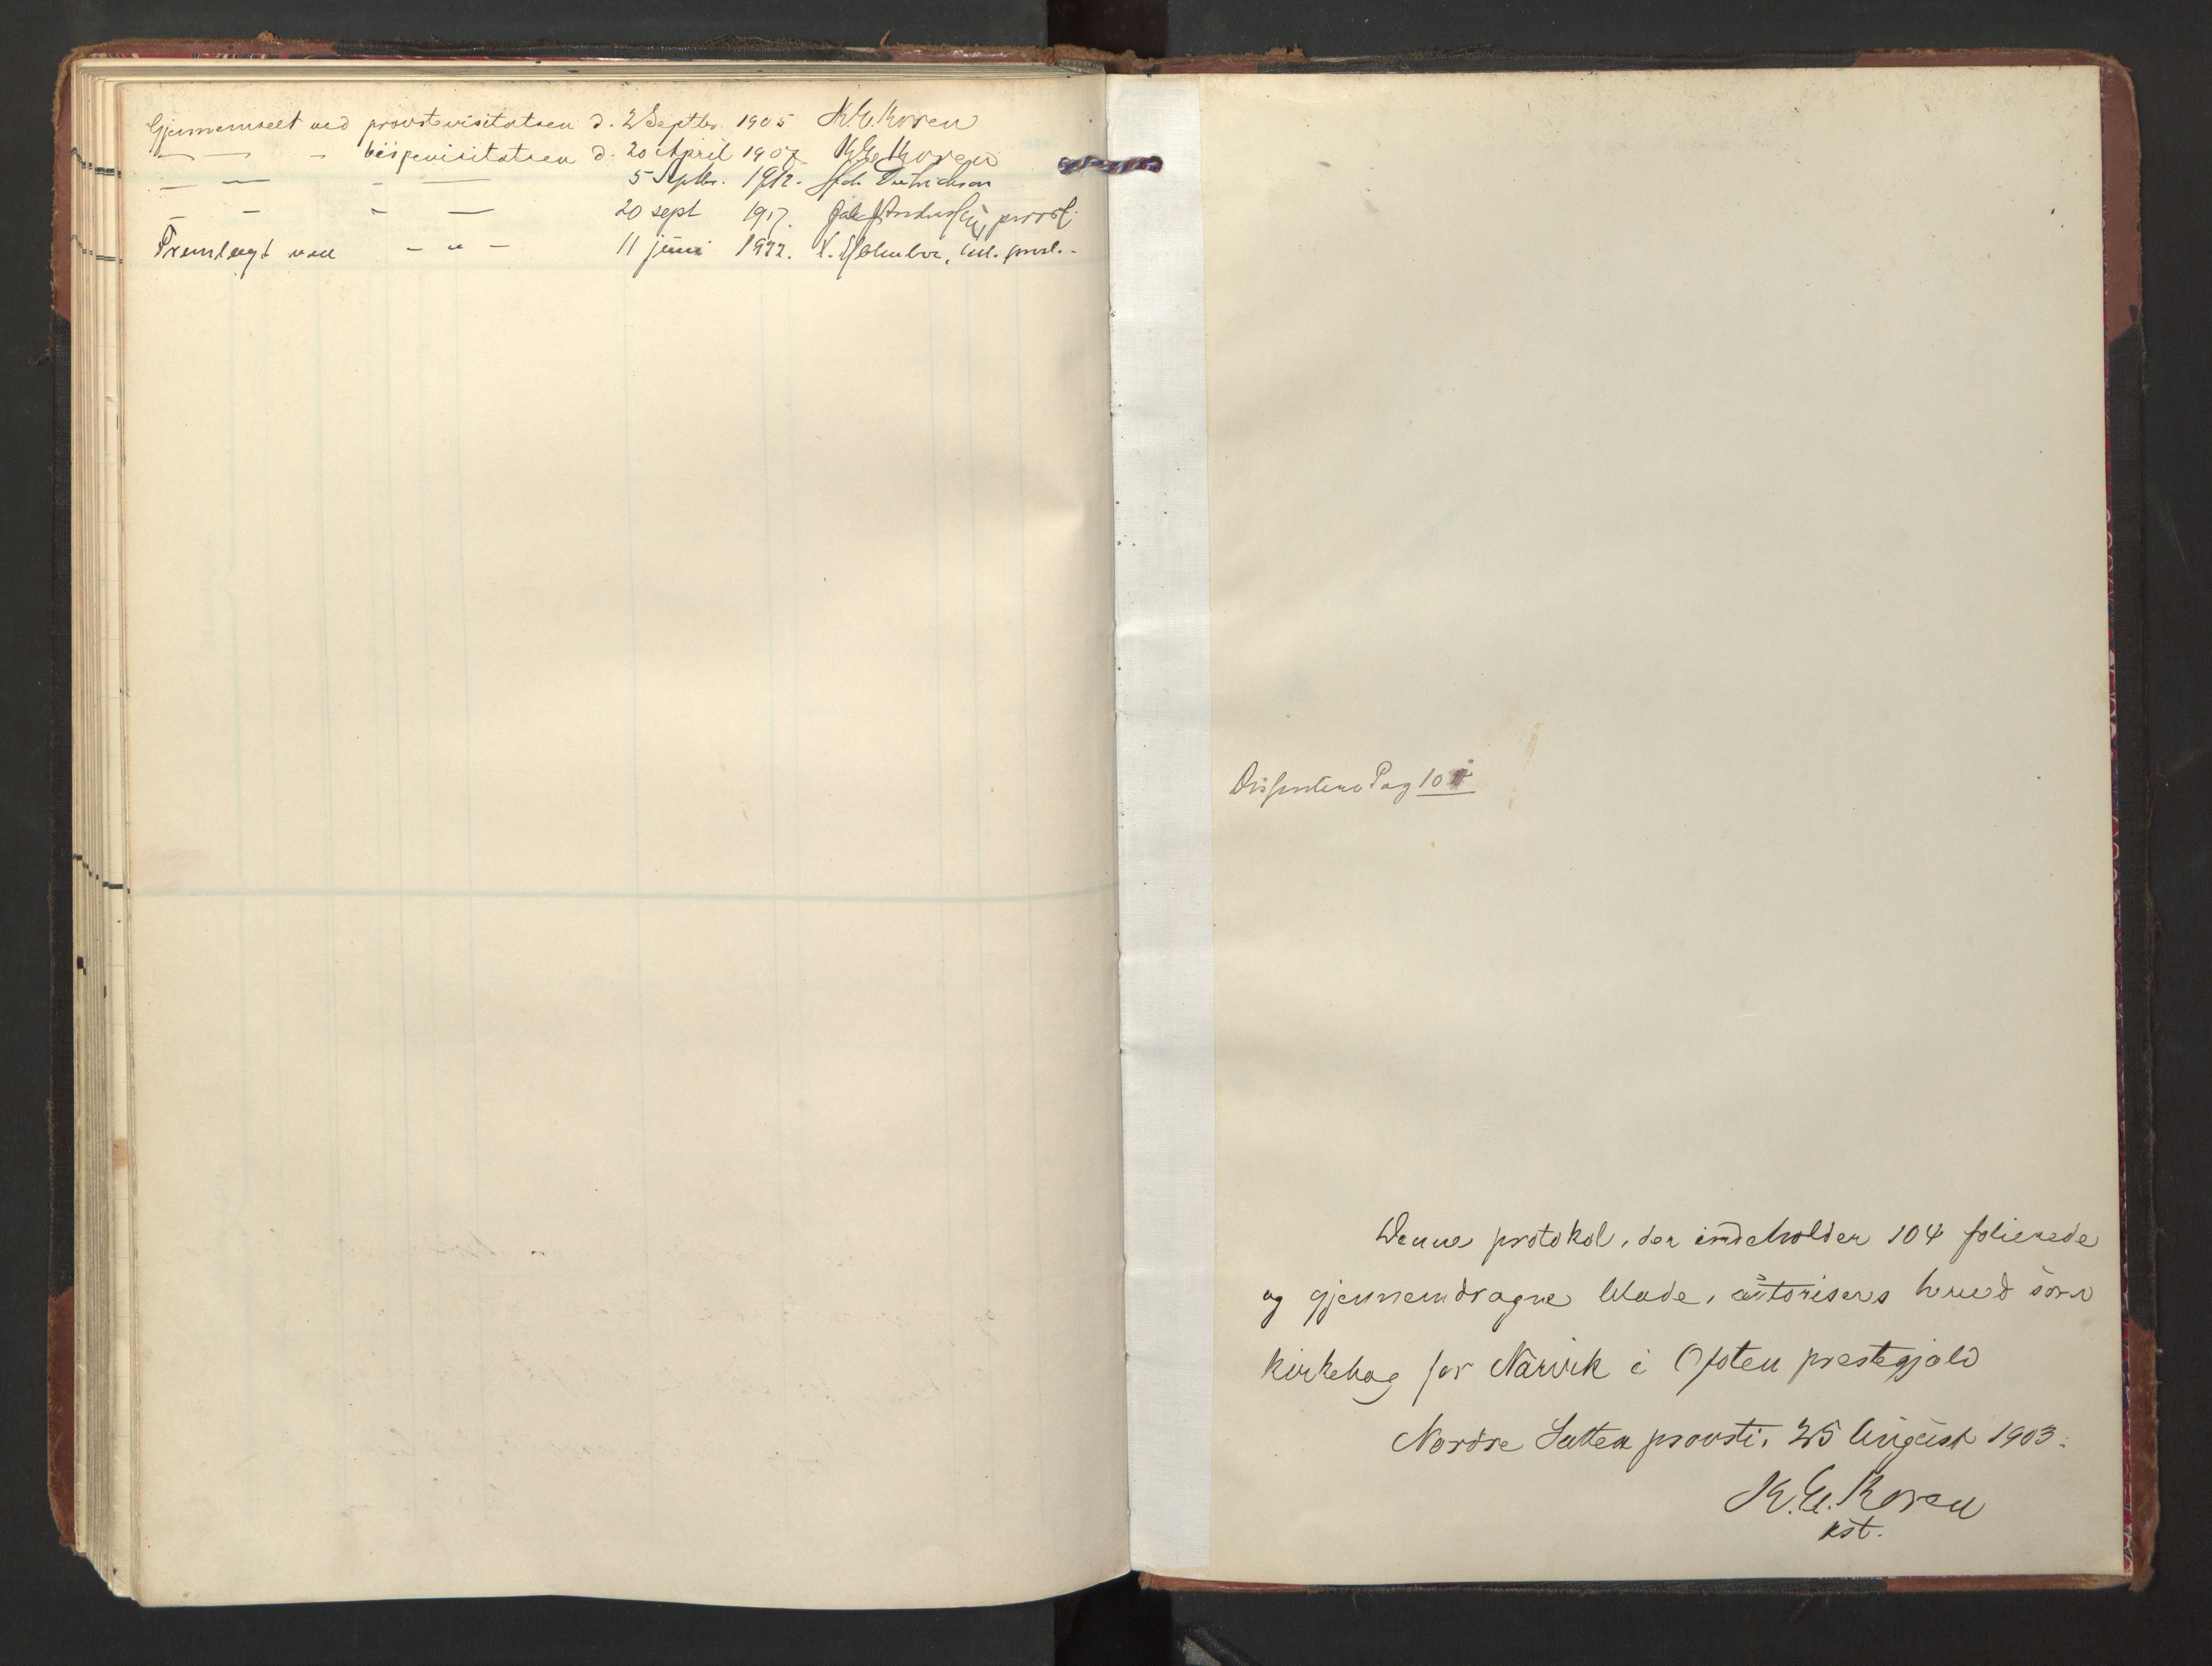 Gjennemseet ved provstevisitatsen d. 2 Septbr. 1905 K. G. Koren
— — - bispevisitatsen d. 20 April 1907 K G Koren
— — - — 5 Septbr. 1912. Dietrichson
— - - — 20 sept 1917. provst.
Fremlagt ved - " - 11 juni 1922. provst.-
Dissentere Pag 10
Denne protokol, der indeholder 104 folierede
og gjennemdragne blade, autoriseres herved som
kirkebog for Narvik i Ofoten prestegjæld
Nordre Salten provsti. 25 August 1903.
K. G. Koren
kst.